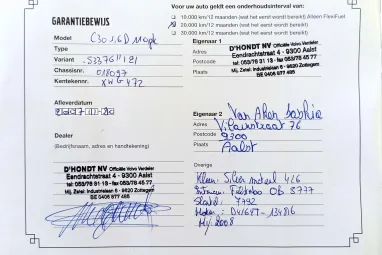 GARANTIEBEWIJS
Model C30 1.6D
Type
Variant 533761121
Chassisnr. 018097
Kentekennr. XWG 472
Afleverdatum
Dealer
(Bedrijfsnaam, adres en handtekening)
D'HONDT NV Officiële Volvo Verdeler
Eendrachtstraat 4 - 9300 Aalst
tel: 053/78 31 13 - fax 053/78 45 77
Mij. Zetel: Industrielaan 6 - 9620 Zottegem
BE 0406 877 485
Voor uw auto geldt een onderhoudsinterval van:
10.000 km/12 maanden (wat het eerst wordt bereikt) Alleen FlexiFuel
20.000 km/12 maanden (wat het eerst wordt bereikt)
30.000 km/12 maanden (wat het eerst wordt bereikt)
Eigenaar 1
Adres
Postcode
Plaats
D'HONDT NV Officiële Volvo Verdeler
Eendrachtstraat 4 - 9300 Aalst
tel: 053/78 31 13 - fax 053/78 45 77
Mij. Zetel: Industrielaan 6 - 9620 Zottegem
BE 0406 877 485
Eigenaar 2 Van Aken Saskia
Adres 76
Postcode 9300
Plaats Aalst
Overige
Kleur: Silver metaal 426
Interieur: OB 3777
Sleutel: 7792
Motor: D4164T - 134816
Mj 2008